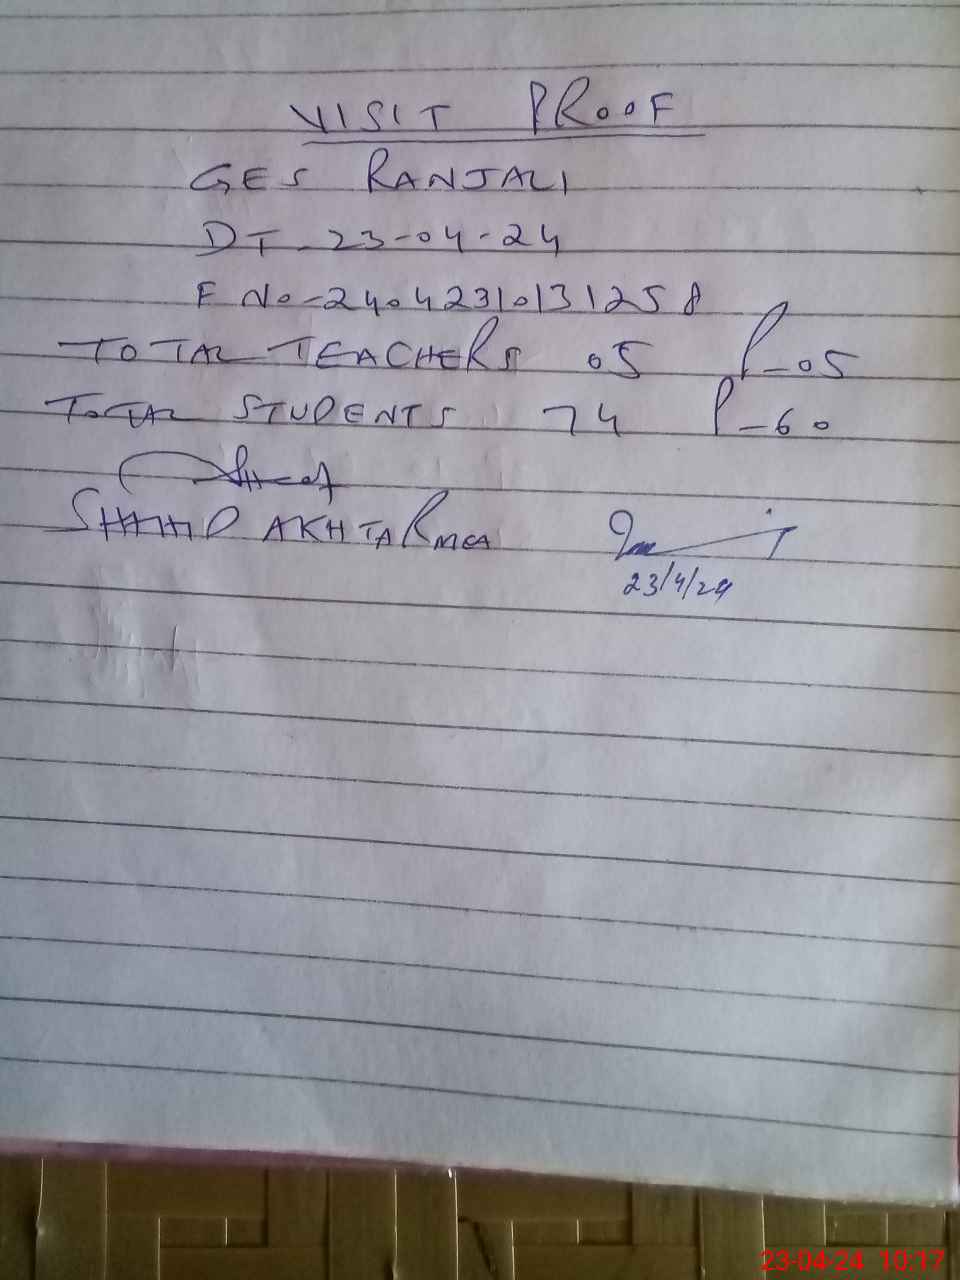 VISIT PROOF
GES RANJALI
DT - 23-04-24
F No - 24042310131258
TOTAL TEACHERS 05 P-05
TOTAL STUDENTS 74 P-60
SHAHID AKHTAR MEA
23/4/24
23-04-24 10:17